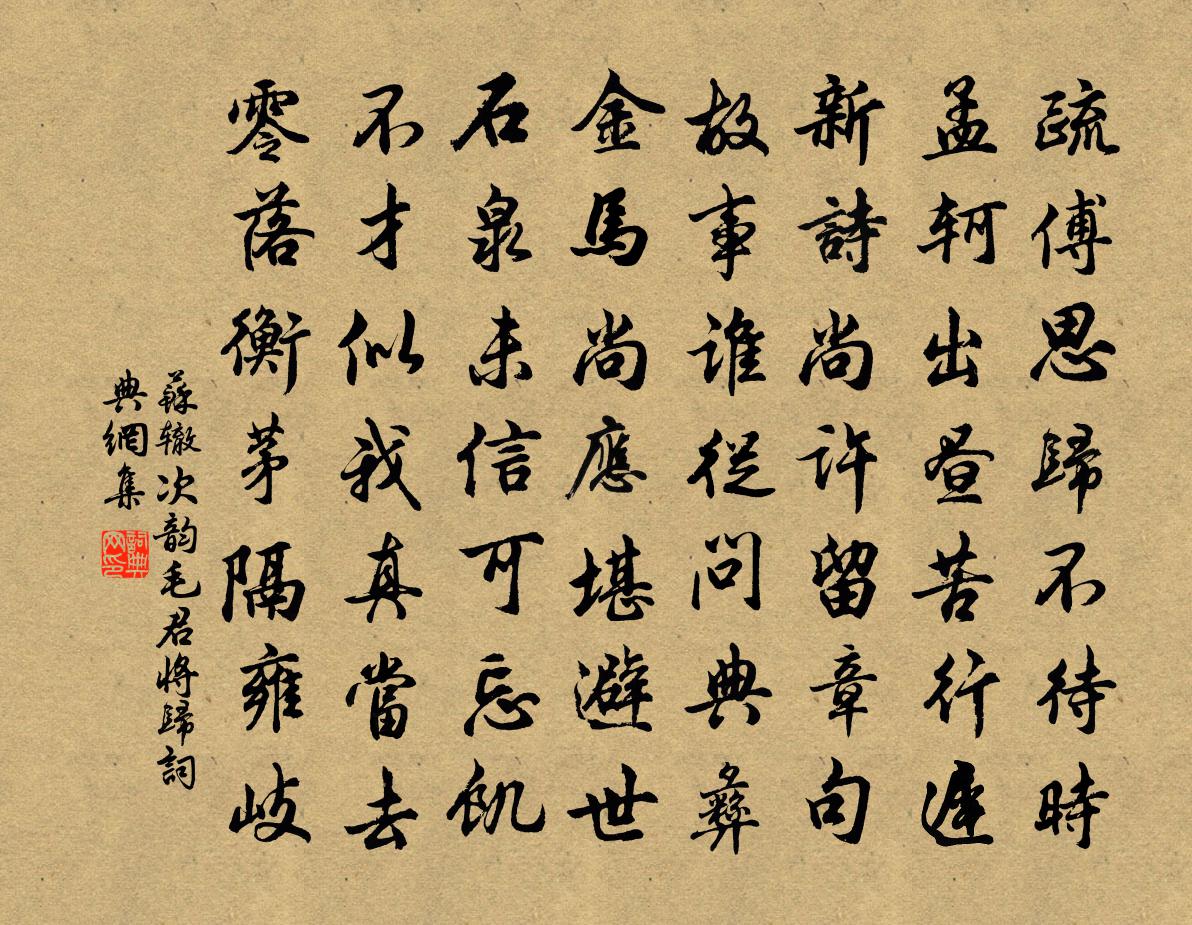 疏傅思歸不待時
孟軻出晝苦行遲
新詩尚許留章句
故事誰從問典彝
金馬尚應堪避世
石泉未信可忘飢
不才似我真當去
零落衡茅隔雍岐
蘇辙次韵毛君将歸詞
典網集
詞典
网印